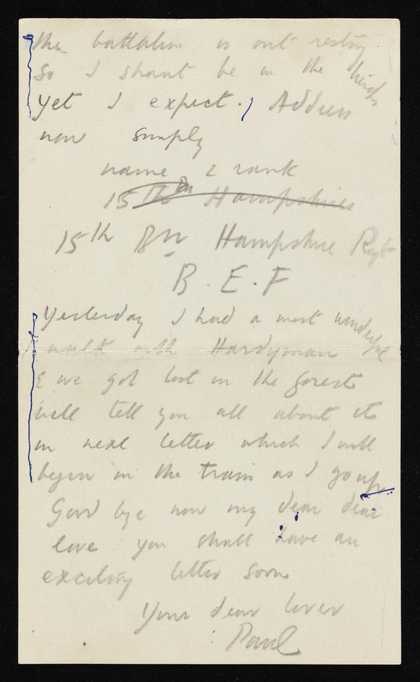 the battalion is out resting.
So I shant be in the
yet I expect. Address
now simply
name & rank
15th Bn Hampshires
15th Bn Hampshire Regt
B.E.F
Yesterday I had a most wonderful
walk with Hardyman
& we got lost in the forest
will tell you all about it
in next letter which I will
begin in the train as I go up.
Good bye now my dear dear
love you shall have an
exciting letter soon
Your dear lover
Paul